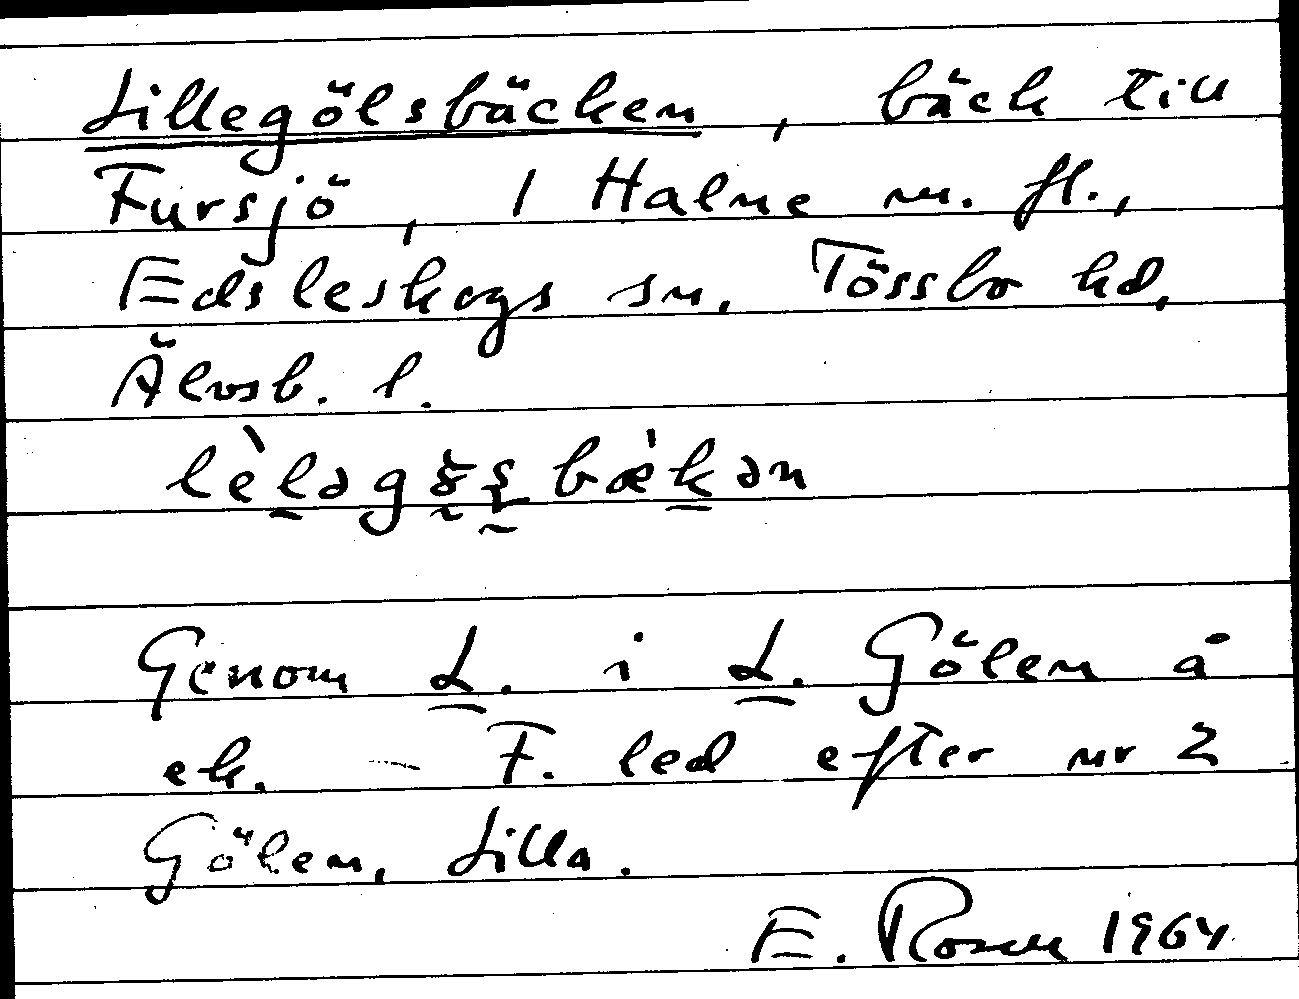 Lillegölsbäcken, bäck till
Fursjö, 1 Halne m. fl.,
Edsleskogs sn. Tössbo hd,
Älvsb. l.
Genom L. i L. Gölen å
ek. — F. led efter nr 2
Gölen, Lilla.
E. Rosén 1964